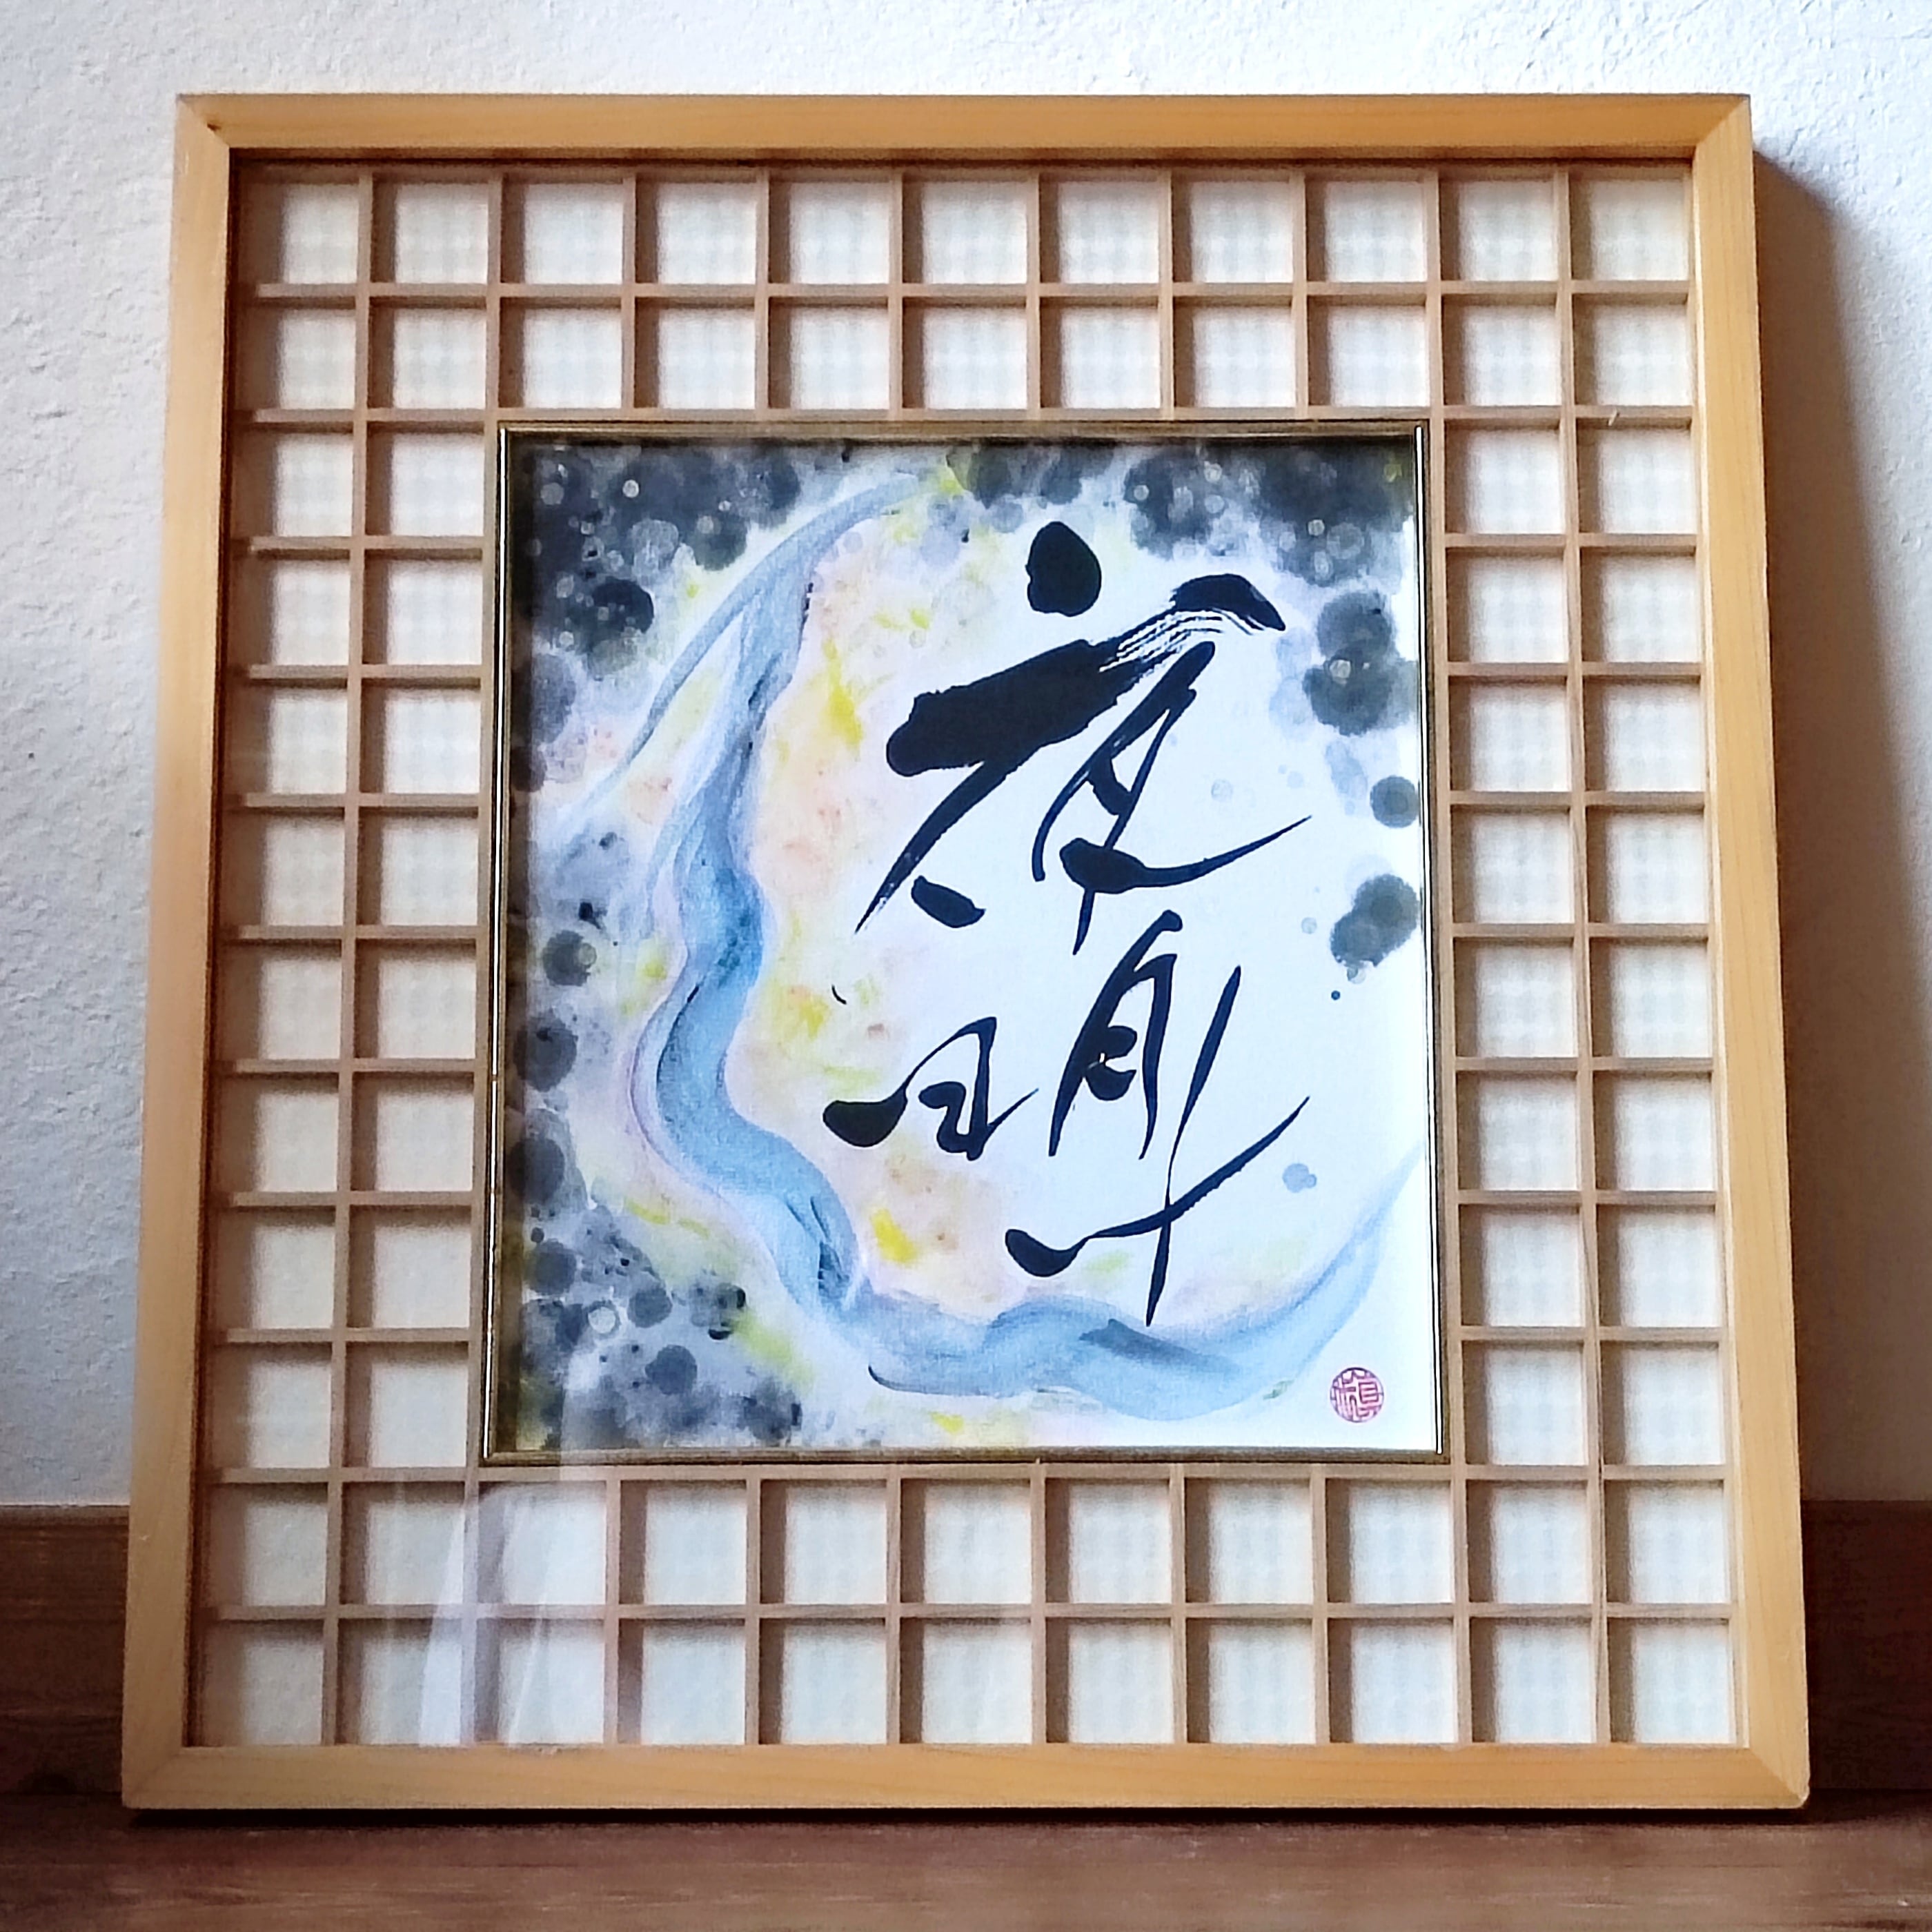 夜明け